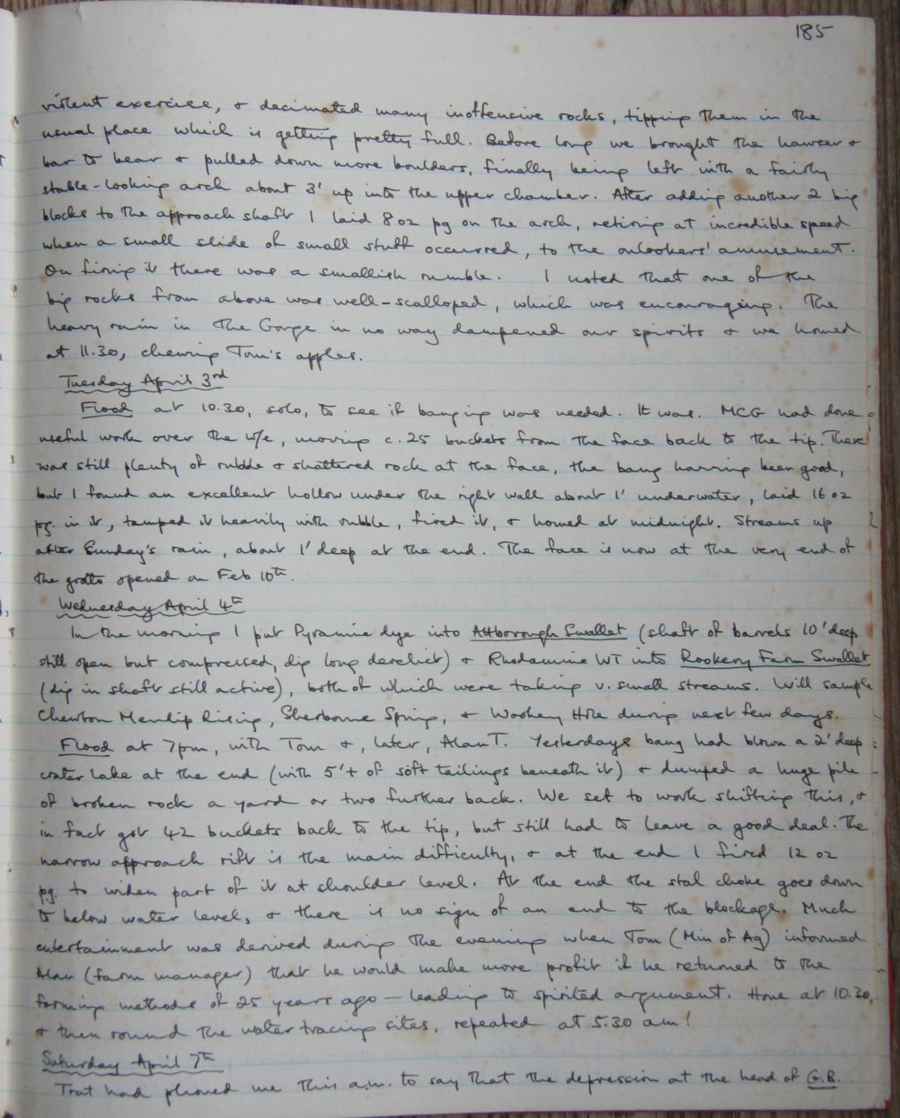 185
violent exercise, & decimated many inoffensive rocks, tipping them in the
usual place which is getting pretty full. Before long we brought the hawser &
bar to bear & pulled down more boulders, finally being left with a fairly
stable-looking arch about 3' up into the upper chamber. After adding another 2 big
blocks to the approach shaft I laid 8 oz pg on the arch, retiring at incredible speed
when a small slide of small stuff occurred, to the onlookers' amusement.
On firing it there was a smallish rumble. I noted that one of the
big rocks from above was well-scalloped, which was encouraging. The
heavy rain in the Gorge in no way dampened our spirits & we homed
at 11.30, chewing Tom's apples.
Tuesday April 3rd
Flood at 10.30, solo, to see if banging was needed. It was. MCG had done
useful work over the w/e, moving c.25 buckets from the face back to the tip. There
was still plenty of rubble & shattered rock at the face, the bang having been good,
but I found an excellent hollow under the right wall about 1' underwater, laid 16 oz
pg. in it, tamped it heavily with rubble, fired it, & homed at midnight. Streams up
after Sunday's rain, about 1' deep at the end. The face is now at the very end of
the grotto opened on Feb 10th.
Wednesday April 4th
In the morning I put Pyramine dye into Attborough Swallet (shaft of barrels 10' deep
still open but compressed, dig long derelict) & Rhodamine WT into Rookery Farm Swallet
(dig in shaft still active), both of which were taking v. small streams. Will sample
Chewton Mendip Rising, Sherborne Spring, & Wookey Hole during next few days.
Flood at 7pm, with Tom &, later, Alan T. Yesterdays bang had blown a 2' deep
water lake at the end (with 5'+ of soft tailings beneath it) & dumped a huge pile
of broken rock a yard or two further back. We set to work shifting this, &
in fact got 42 buckets back to the tip, but still had to leave a good deal. The
narrow approach rift is the main difficulty, & at the end I fired 12 oz
pg. to widen part of it at shoulder level. At the end the stal choke goes down
to below water level, & there is no sign of an end to the blockage. Much
entertainment was derived during the evening when Tom (Min of Ag) informed
Alan (farm manager) that he would make more profit if he returned to the
farming methods of 25 years ago – leading to spirited argument. Home at 10.30,
& then round the water tracing sites, repeated at 5.30 am!
Saturday April 7th
Trat had phoned me this a.m. to say that the depression at the head of G.B.